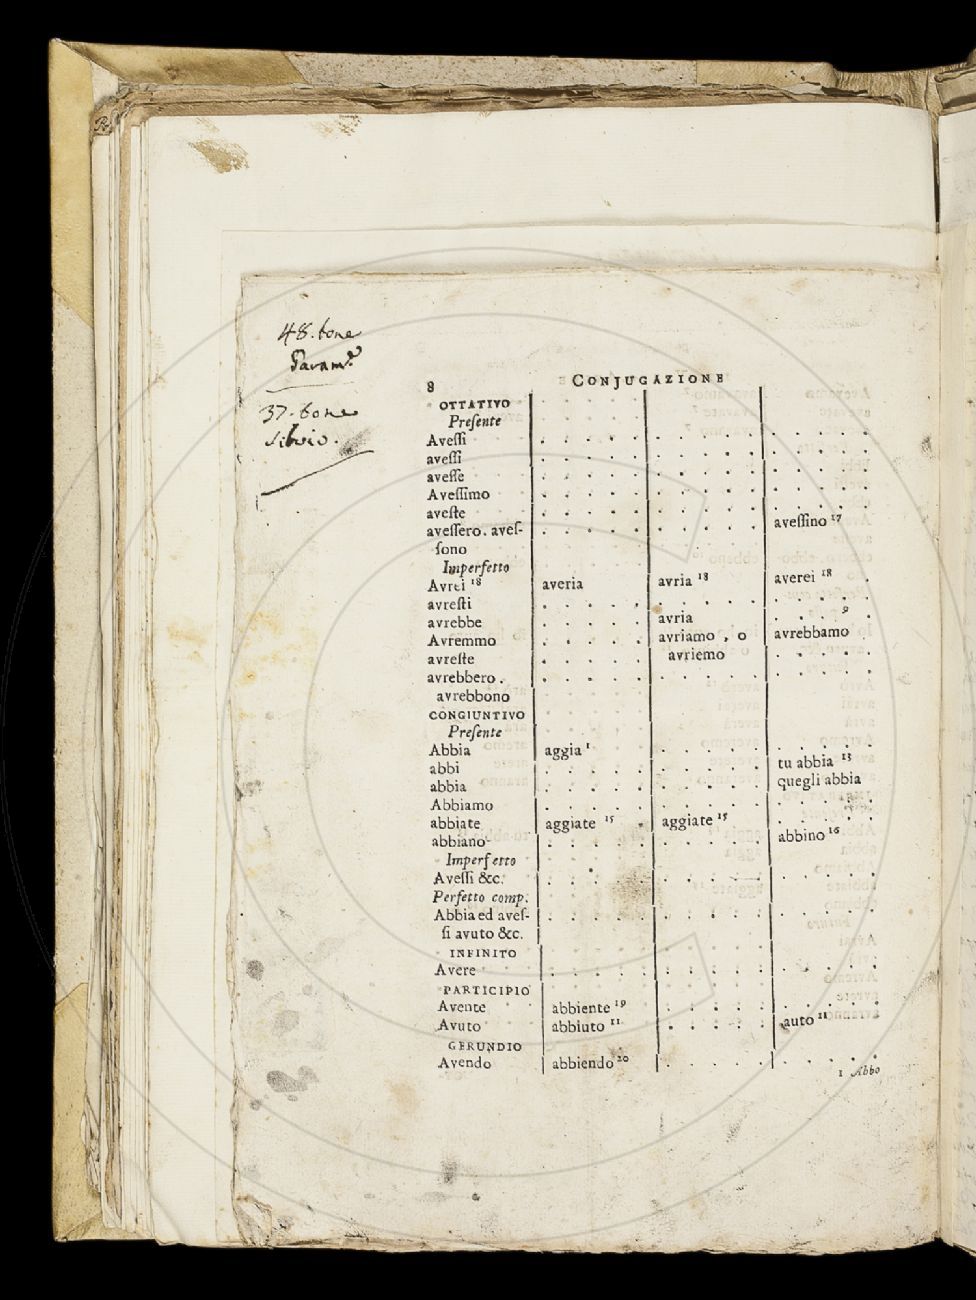 48. bone
Param.e
37. bone
Silvio.
8 CONJUGAZIONE
OTTATIVO
Preſente
Aveſſi . . . . . . . . . . . . . . .
aveſſi . . . . . . . . . . . . . . .
aveſſe . . . . . . . . . . . . . . .
Aveſſimo . . . . . . . . . . . . . . .
aveſte . . . . . . . . . . . . . . .
aveſſero. aveſ- . . . . . . . . . . aveſſino 17
ſono
Imperfetto
Avrei 18 averia avria 18 averei 18 .
avreſti . . . . . . . . . . . . . . .
avrebbe . . . . . avria . . . . 9
Avremmo . . . . . avriamo , o avrebbamo
avreſte . . . . . avriemo . . . . .
avrebbero. . . . . . . . . . . . . . . .
avrebbono
CONGIUNTIVO
Preſente
Abbia aggia 1 . . . . . . . . . .
abbi . . . . . . . . . . tu abbia 13
abbia . . . . . . . . . . quegli abbia
Abbiamo . . . . . . . . . . . . . . .
abbiate aggiate 15 . aggiate 15 . . . . .
abbiano . . . . . . . . . . abbino 16
Imperfetto
Aveſſi &c. . . . . . . . . . . . . . . .
Perfetto comp.
Abbia ed aveſ- . . . . . . . . . . . . . . .
ſi avuto &c.
INFINITO
Avere . . . . . . . . . . . . . . .
PARTICIPIO
Avente abbiente 19 . . . . . . . . . .
Avuto abbiuto 11 . . . . . auto 11
GERUNDIO
Avendo abbiendo 20 . . . . . . . . . .
1 Abbo